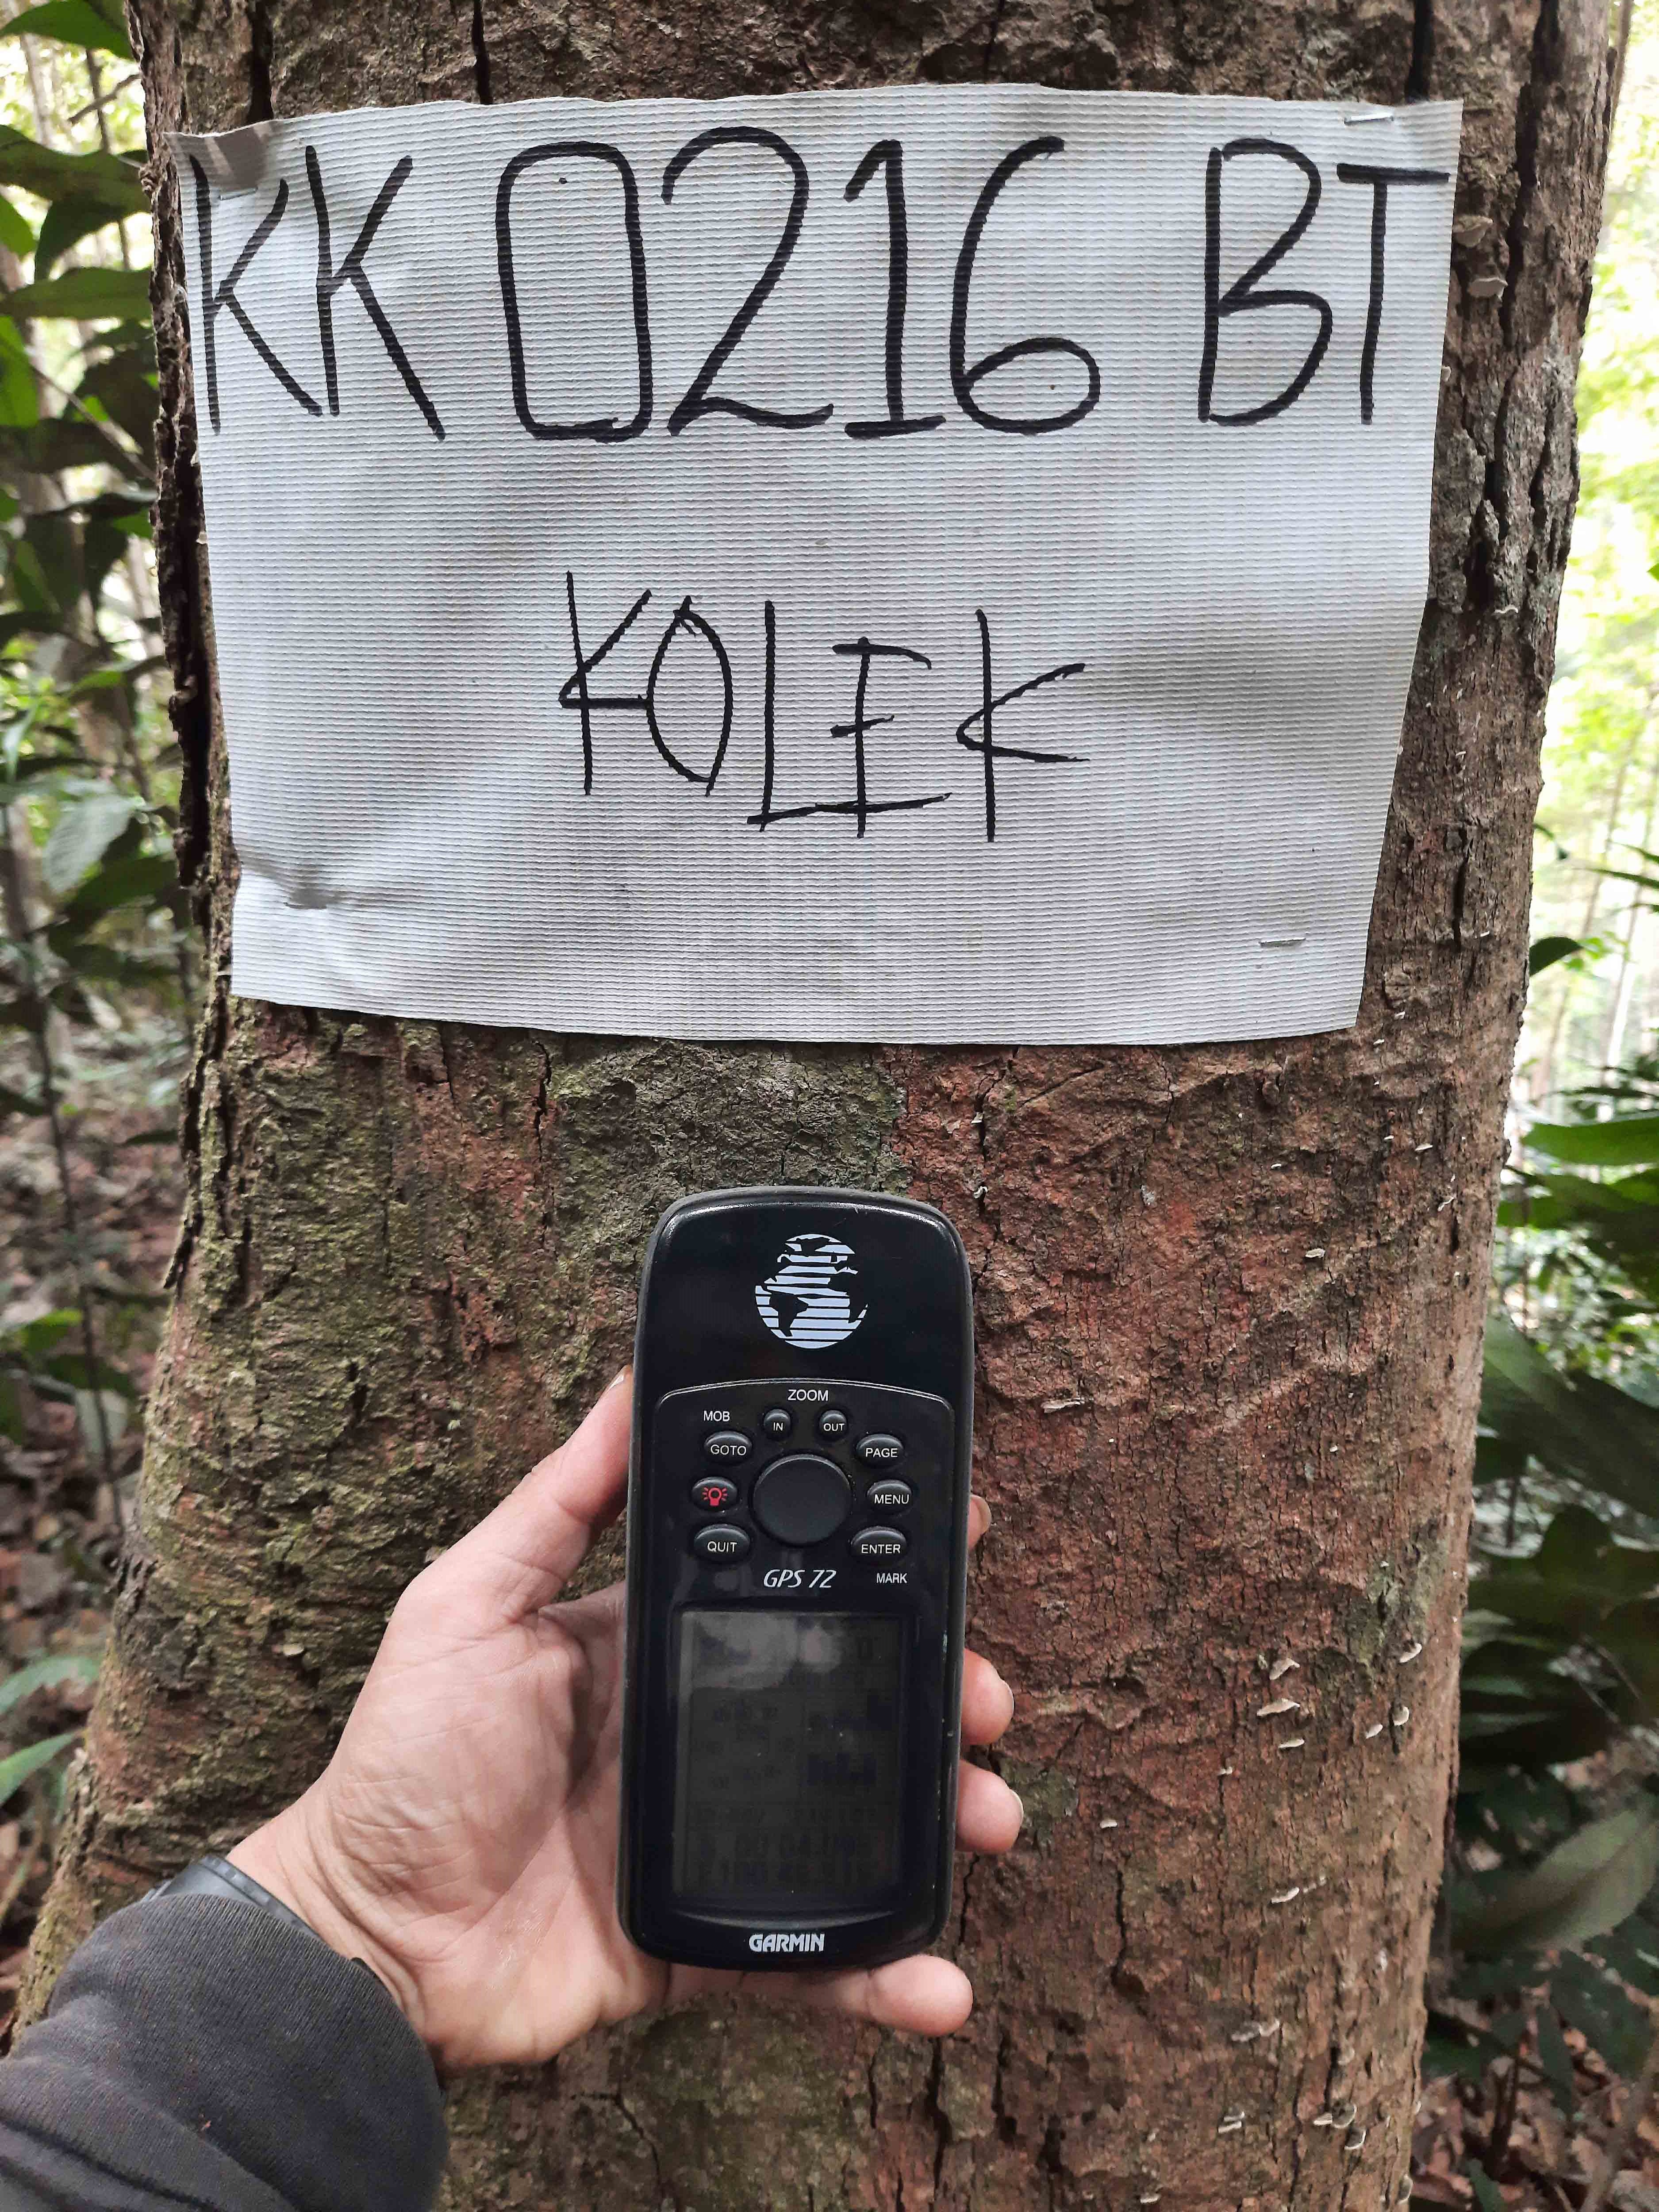 KK 0216 BT
KOLEK
ZOOM
MOB IN OUT
GOTO PAGE
MENU
QUIT ENTER
GPS 72 MARK
GARMIN